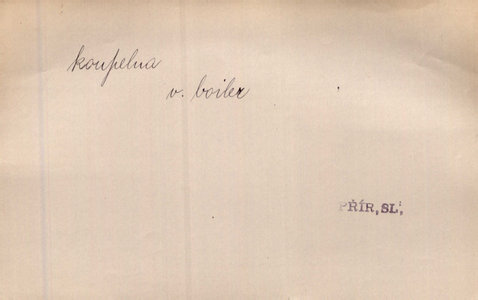 koupelna
v. boiler
PŘÍR, SL,